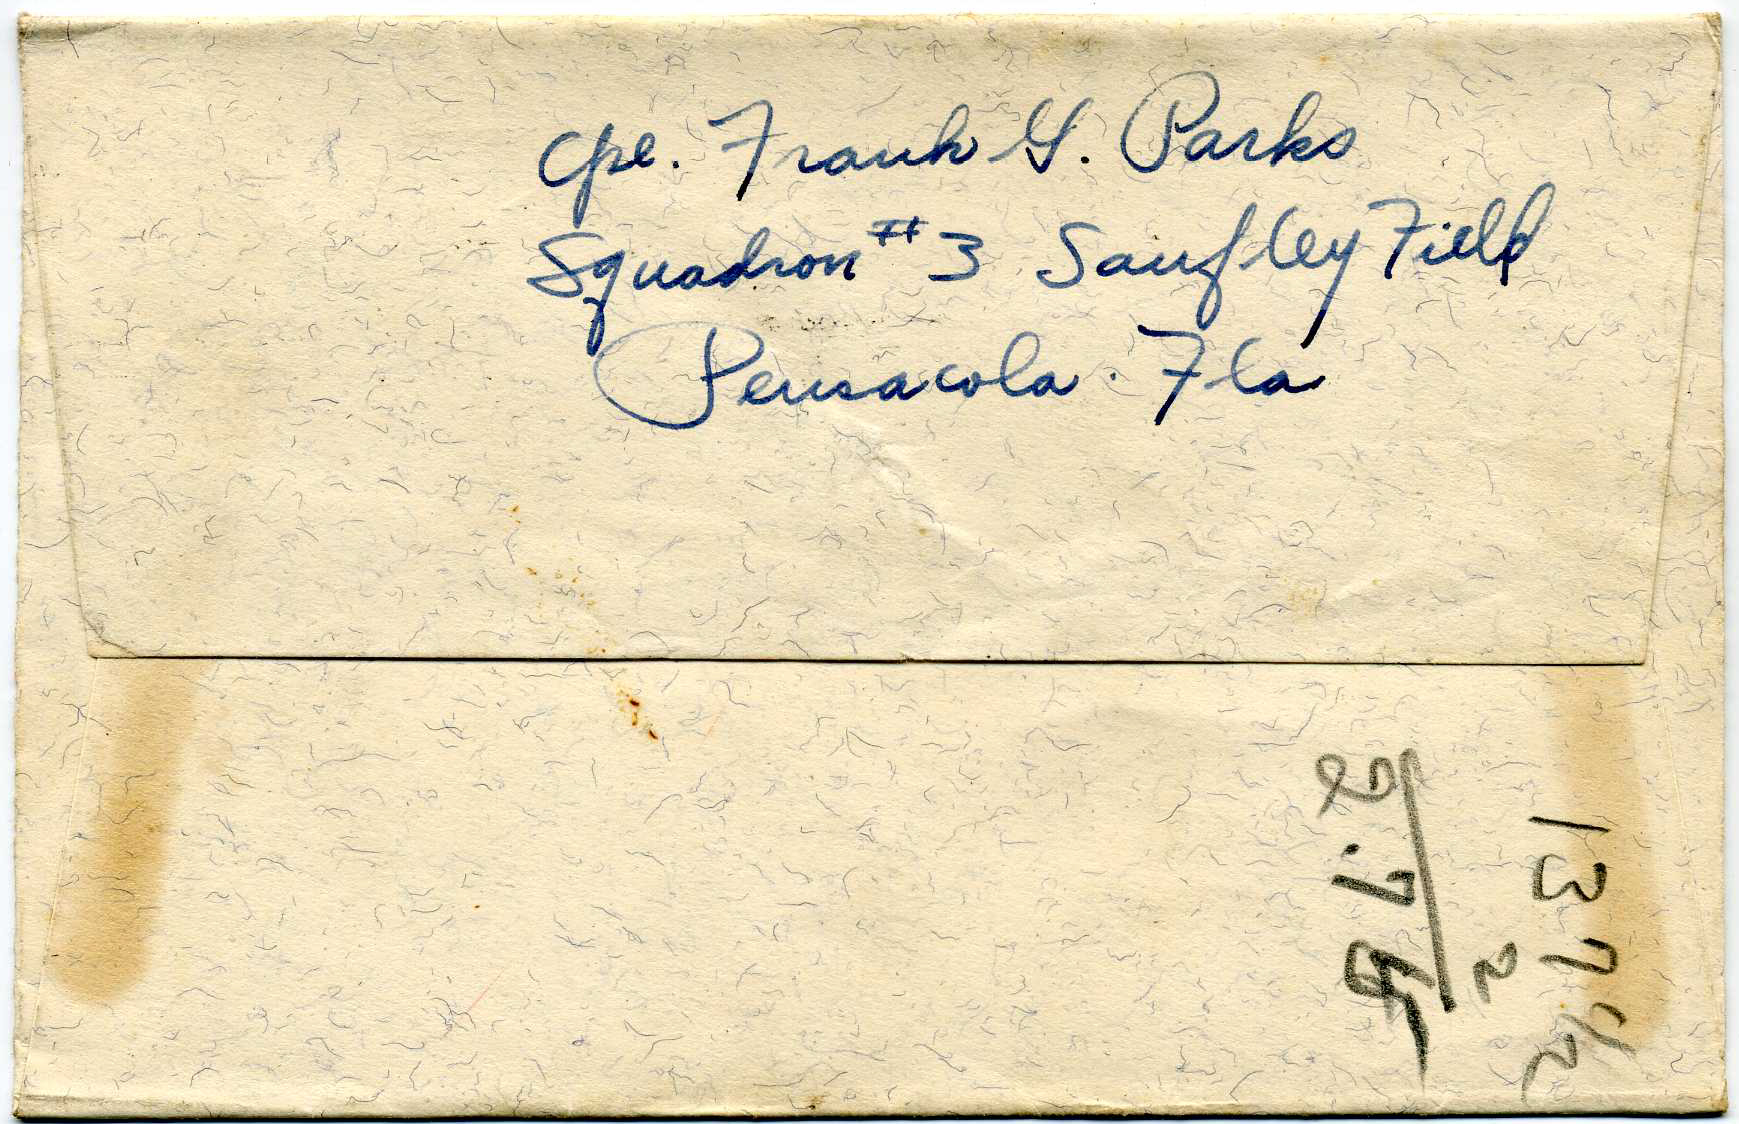 Cpl. Frank G. Parks
Squadron #3 Saufley Field
Pensacola. Fla
137 1/2
2
2.75